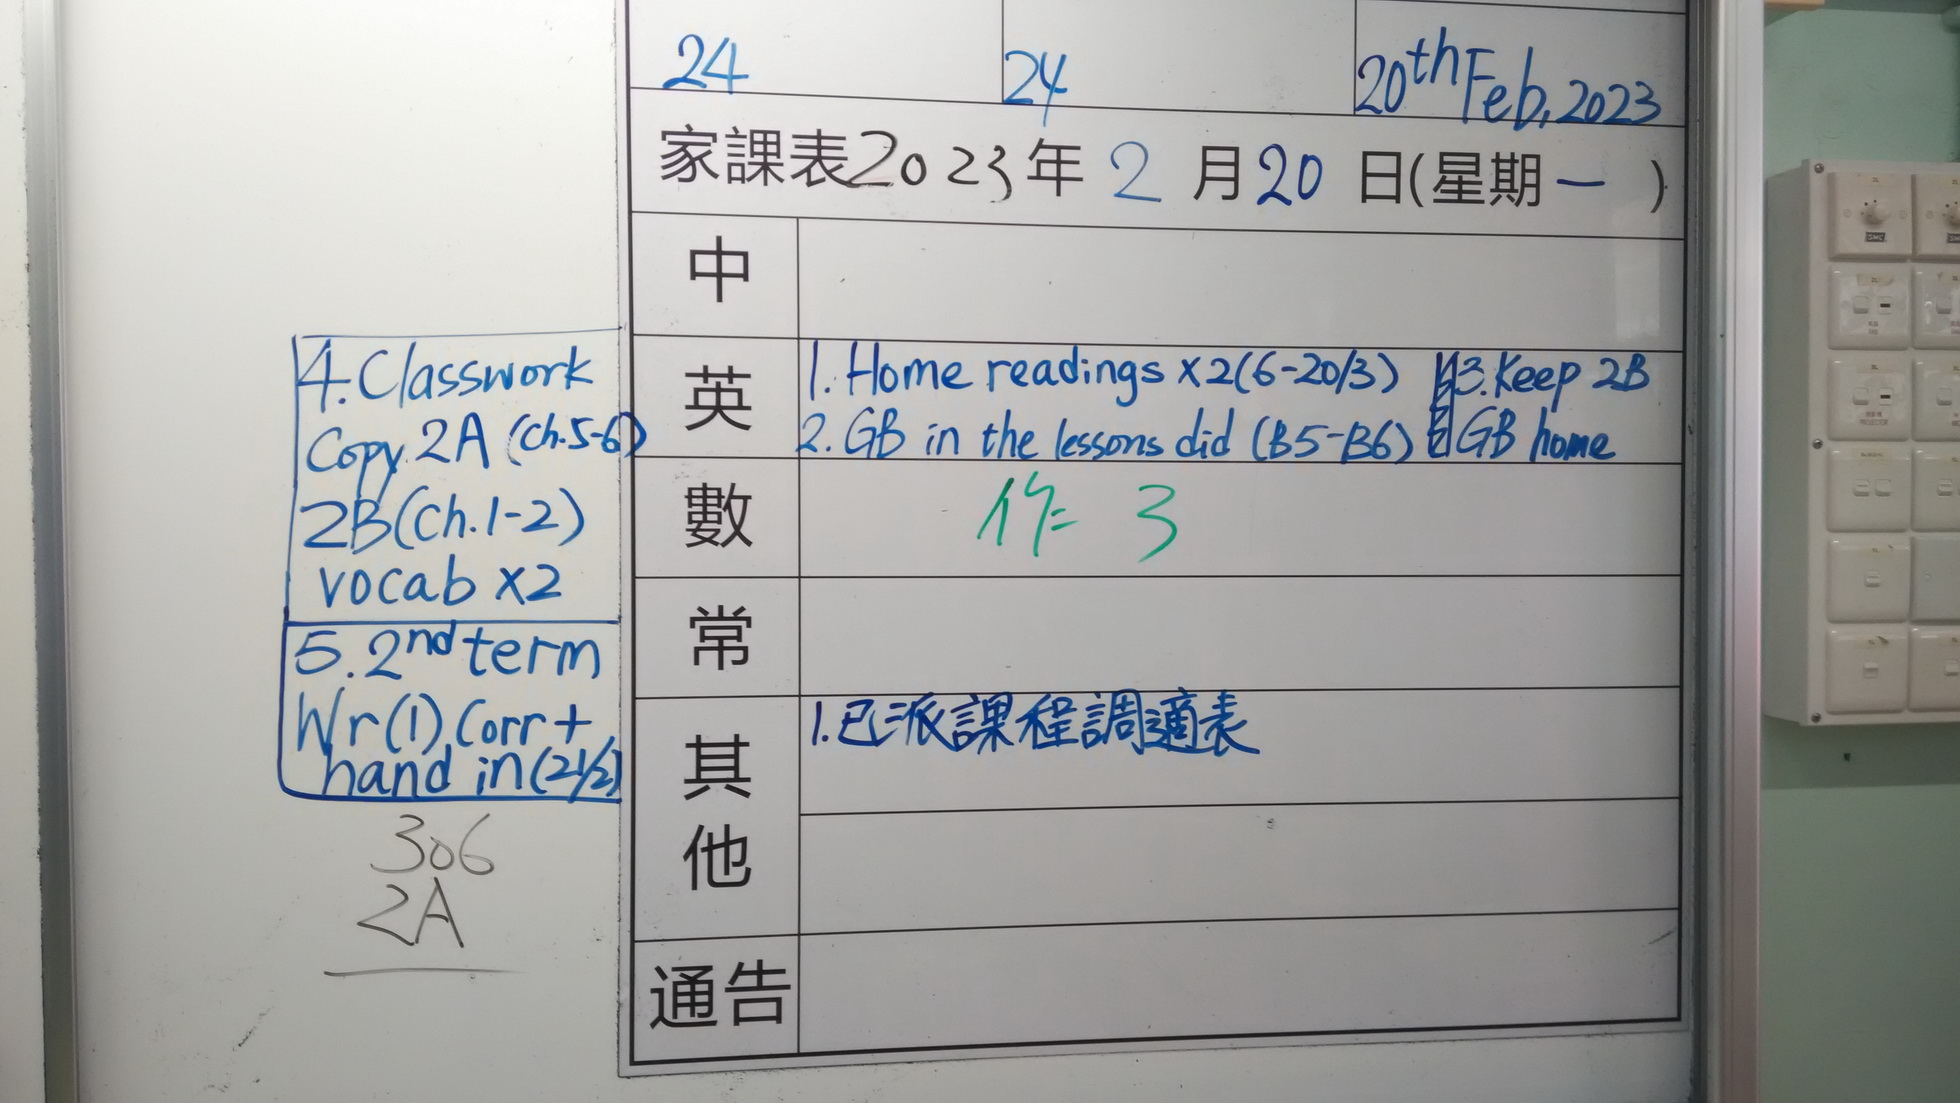 24 24 20th Feb, 2023
家課表2023年 2 月20 日(星期一 )
中
英 1. Home readings x2(6-20/3) 3. Keep 2B
2. GB in the lessons did (B5-B6) GB home
數 作 3
常
其他 1.已派課程調適表
通告
4. Classwork
Copy 2A (Ch.5-6)
2B(Ch.1-2)
vocab x2
5. 2nd term
Wr(1) Corr +
hand in (21/2)
306
2A